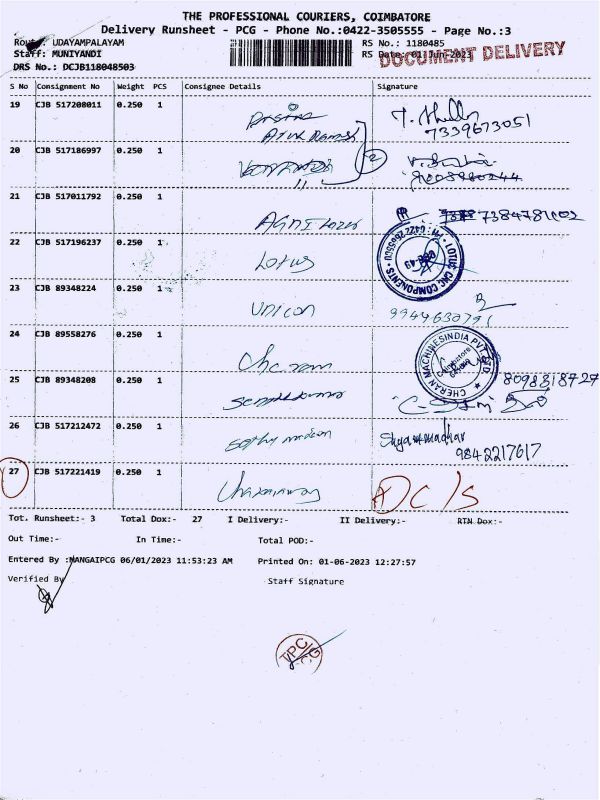 THE PROFESSIONAL COURIERS, COIMBATORE
Delivery Runsheet - PCG - Phone No.:0422-3505555 - Page No.:3
Route: UDAYAMPALAYAM RS No.: 1180485
Staff: MUNIYANDI RS Date: 01-Jun-2023
DOCUMENT DELIVERY
DRS No.: DCJB118048503
S No Consignment No Weight PCS Consignee Details Signature
19 CJB 517208011 0.250 1
7339673051
20 CJB 517186997 0.250 1
2
21 CJB 517011792 0.250 1 7384781102
LOTUS CNC COMPONENTS
22 CJB 517196237 0.250 1 Lotus
23 CJB 89348224 0.250 1 Unicon 9944630791
24 CJB 89558276 0.250 1
CHERAN MACHINES INDIA PVT LTD
25 CJB 89348208 0.250 1 8098818727
26 CJB 517212472 0.250 1
9842217617
27 CJB 517221419 0.250 1 DC/S
Tot. Runsheet:- 3 Total Dox:- 27 I Delivery:- II Delivery:- RTN Dox:-
Out Time:- In Time:- Total POD:-
Entered By :MANGAIPCG 06/01/2023 11:53:23 AM Printed On: 01-06-2023 12:27:57
Verified By Staff Signature